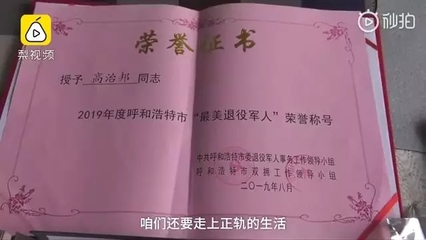 梨视频
秒拍
荣誉证书
授予 高治邦 同志
2019年度呼和浩特市“最美退役军人”荣誉称号
中共呼和浩特市委退役军人事务工作领导小组
呼和浩特市双拥工作领导小组
二〇一九年八月
咱们还要走上正轨的生活